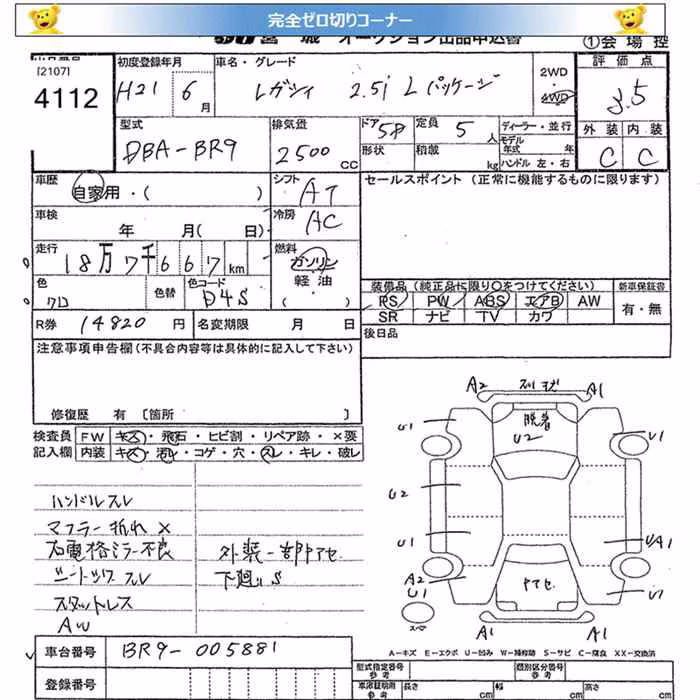 完全ゼロ切りコーナー
宮城 オークション出品申込書 ①会場控
[2107]
4112
初度登録年月 H21年 6月
車名・グレード レガシィ 2.5i Lパッケージ
2WD
4WD
評価点 3.5
外装 内装
C C
型式 DBA-BR9
排気量 2500 CC
ドア 5D
形状
定員 5人
積載 kg
ディーラー・並行
モデル年式 年
ハンドル 左・右
車歴 自家用・( )
シフト AT
セールスポイント (正常に機能するものに限ります)
車検 年 月( 日)
冷房 AC
走行 18万7千667km
燃料 ガソリン
軽油
( )
色 クロ
色替
色コード D4S
装備品 (純正品に限り○をつけてください) 新車保証書
PS PW ABS エアB AW 有・無
SR ナビ TV カワ
R券 14820円
名変期限 月 日
後日品
注意事項申告欄 (不具合内容等は具体的に記入して下さい)
修復歴 有 [箇所 ]
検査員記入欄
FW キズ・飛石・ヒビ割・リペア跡・×要
内装 キズ・汚レ・コゲ・穴・スレ・キレ・破レ
ハンドルスレ
マフラー折れ×
右電格ミラー不良 外装一部アセ
シートシワスレ 下廻りS
スタットレス
AW
A2 スリキズ A1
U1 脱着 U1
U2
U2
U1 UA1
A2
U1 アセ U1
スペア
A1 A1
A-キズ E-エクボ U-凹み W-補修跡 S-サビ C-腐食 XX-交換済
車台番号 BR9-005881
登録番号
型式指定番号 参考
類別区分番号 参考
車庫証明用 参考 長さ cm 幅 cm 高さ cm